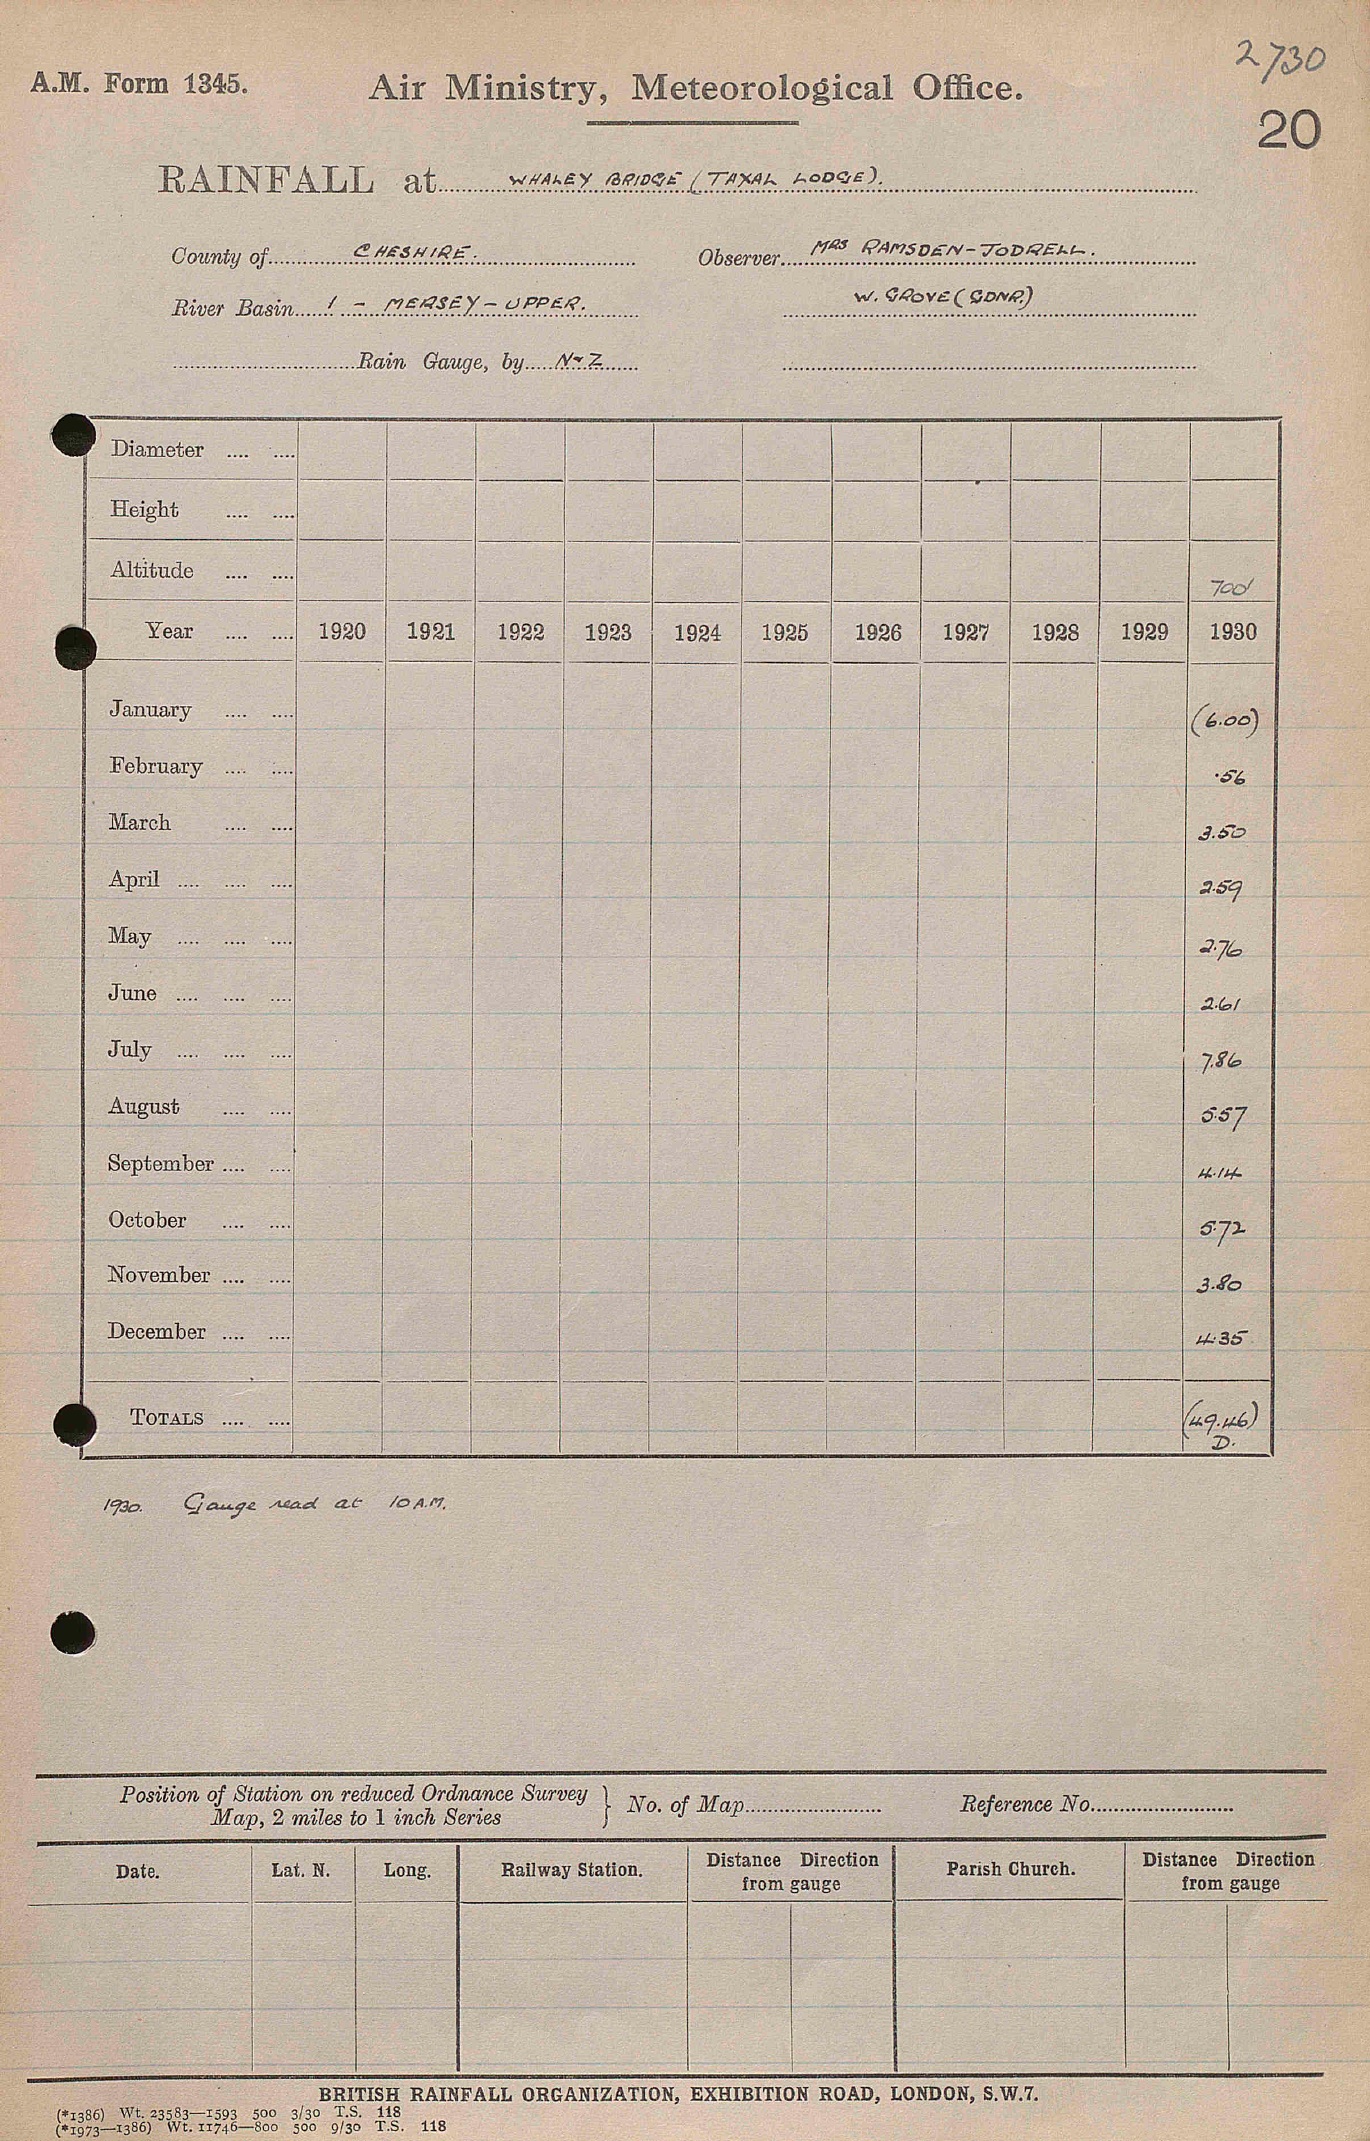 2730
A.M. Form 1345.
Air Ministry, Meteorological Office.
20
RAINFALL at WHALEY BRIDGE (TAXAL LODGE).
County of CHESHIRE. Observer MRS RAMSDEN-JODRELL.
River Basin 1 - MERSEY - UPPER. W. GROVE (GDNR.)
Rain Gauge, by N & Z
Diameter .... ....
Height .... ....
Altitude .... .... 700'
Year .... .... 1920 1921 1922 1923 1924 1925 1926 1927 1928 1929 1930
January .... .... (6.00)
February .... .... .56
March .... .... 3.50
April .... .... .... 2.59
May .... .... .... 2.76
June .... .... .... 2.61
July .... .... .... 7.86
August .... .... 5.57
September .... .... 4.14
October .... .... 5.72
November .... .... 3.80
December .... .... 4.35
TOTALS .... .... (49.46)
D.
1930. Gauge read at 10 A.M.
Position of Station on reduced Ordnance Survey
Map, 2 miles to 1 inch Series } No. of Map Reference No.
Date. Lat. N. Long. Railway Station. Distance Direction from gauge Parish Church. Distance Direction from gauge
BRITISH RAINFALL ORGANIZATION, EXHIBITION ROAD, LONDON, S.W.7.
(*1386) Wt. 23583—1593 500 3/30 T.S. 118
(*1973—1386) Wt. 11746—800 500 9/30 T.S. 118